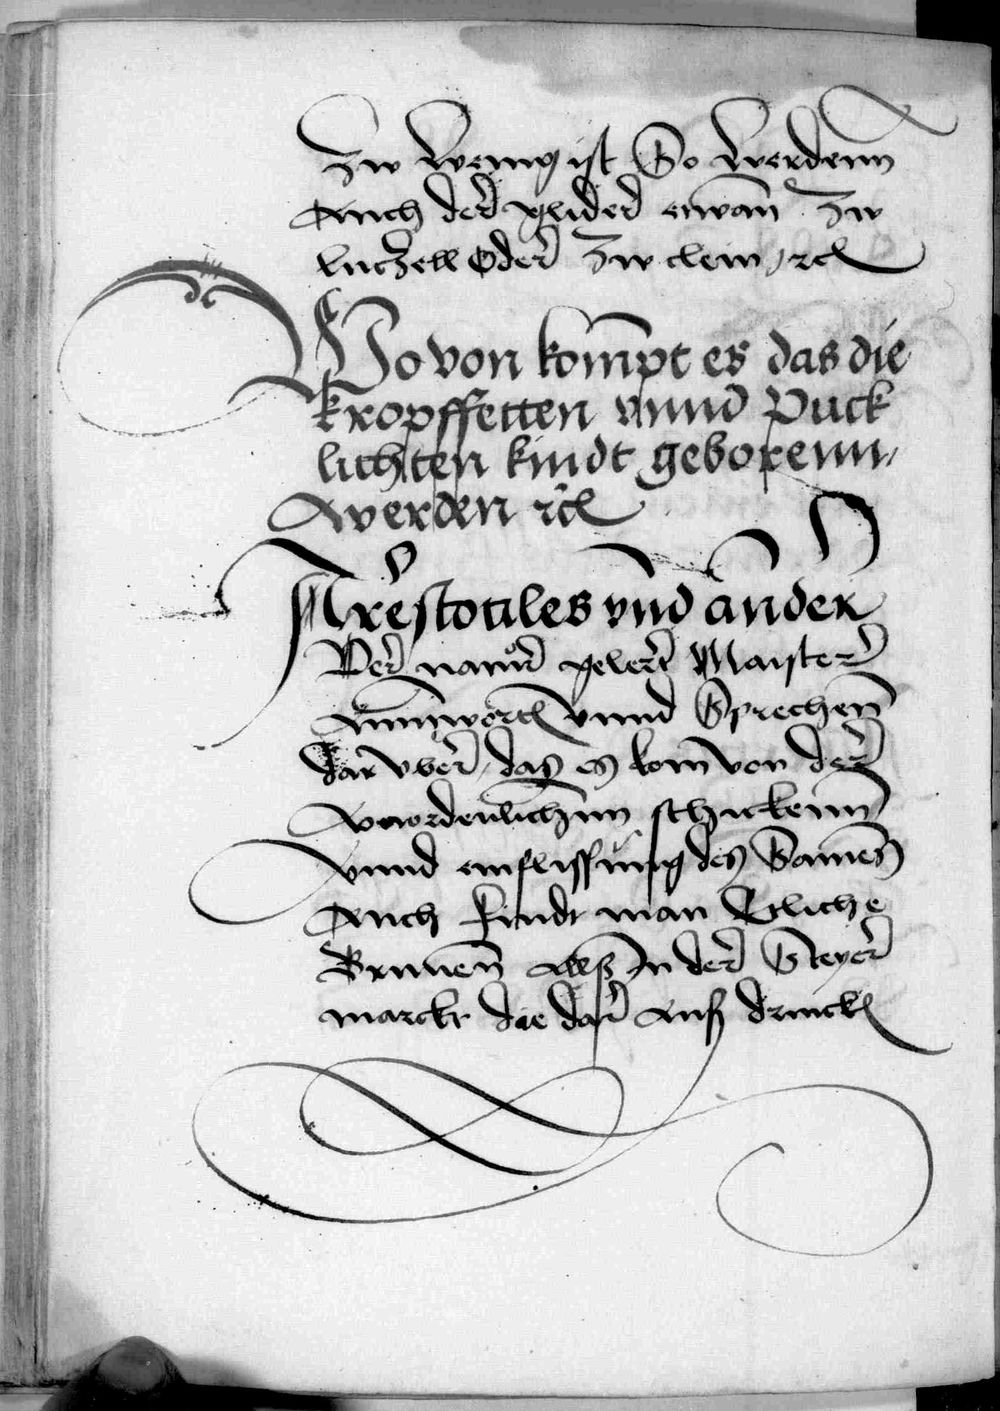 Zw wenig ist So werdenn
Auch der glider etwan Zw
lutzell Oder Zw clein / rc
Wo von kompt es das die
kropffetten vnnd Puck
lichten kindt geborenn
werden rc
Arestotiles vnd ander
Der natur gelert Maister
Anttwortt vnnd Sprechen
dar vber / das es kom von der
vnordenlichenn schickenn
vnnd einflissung des Samens
Auch findt man Etliche
Brunen Als In der Steyer
marckt die dar aus drincken